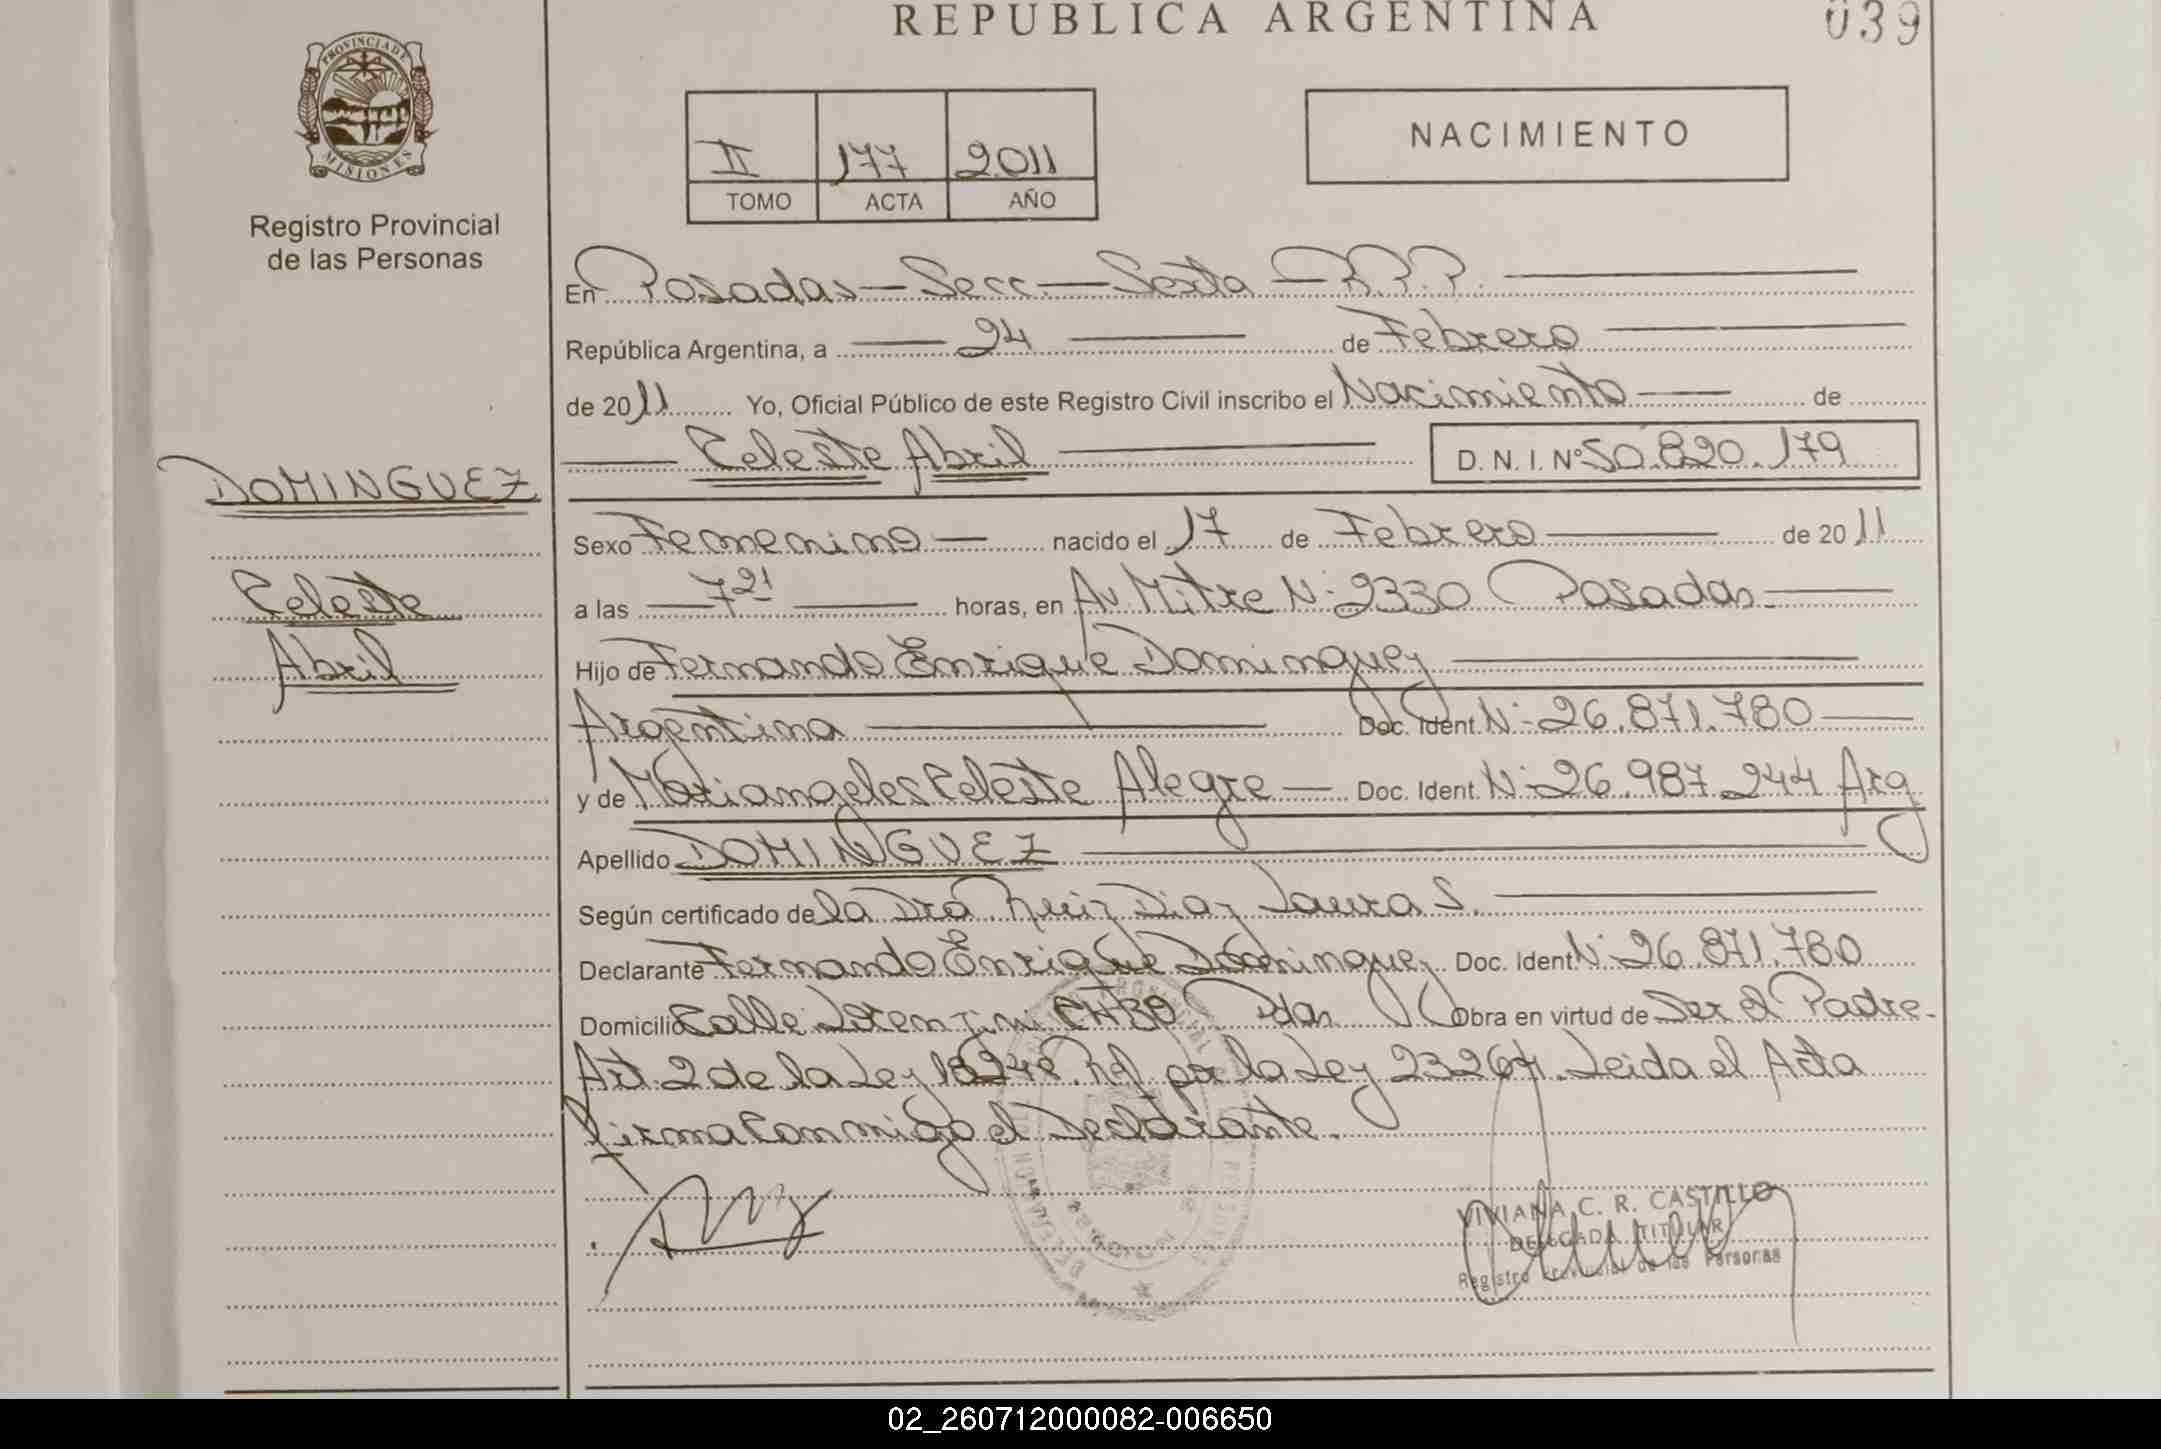 REPUBLICA ARGENTINA
039
PROVINCIA DE
MISIONES
Registro Provincial
de las Personas
II 177 2011
TOMO ACTA AÑO
NACIMIENTO
En Posadas - Secc. - Sexta - R.P.P.
República Argentina, a 24 de Febrero
de 2011 Yo, Oficial Público de este Registro Civil inscribo el Nacimiento de
Celeste Abril D. N. I. Nº 50.820.179
DOMINGUEZ
Celeste
Abril
Sexo Femenino nacido el 17 de Febrero de 2011
a las 7 21 horas, en Av Mitre Nº 2330 Posadas
Hijo de Fernando Enrique Dominguez
Argentina Doc. Ident. Nº 26.871.780
y de Mariangeles Celeste Alegre Doc. Ident. Nº 26.987.244 Arg
Apellido DOMINGUEZ
Según certificado de la Dra Ruiz Diaz Laura S.
Declarante Fernando Enrique Dominguez Doc. Ident Nº 26.871.780
Domicilio Calle CH 39 Pdas Obra en virtud de Ser el Padre-
Art. 2 de la Ley 18248 Rf. por la Ley 23264. Leida el Acta
firma Conmigo el Declarante.
VIVIANA C. R. CASTILLO
DELEGADA TITULAR
Registro Provincial de las Personas
02_260712000082-006650